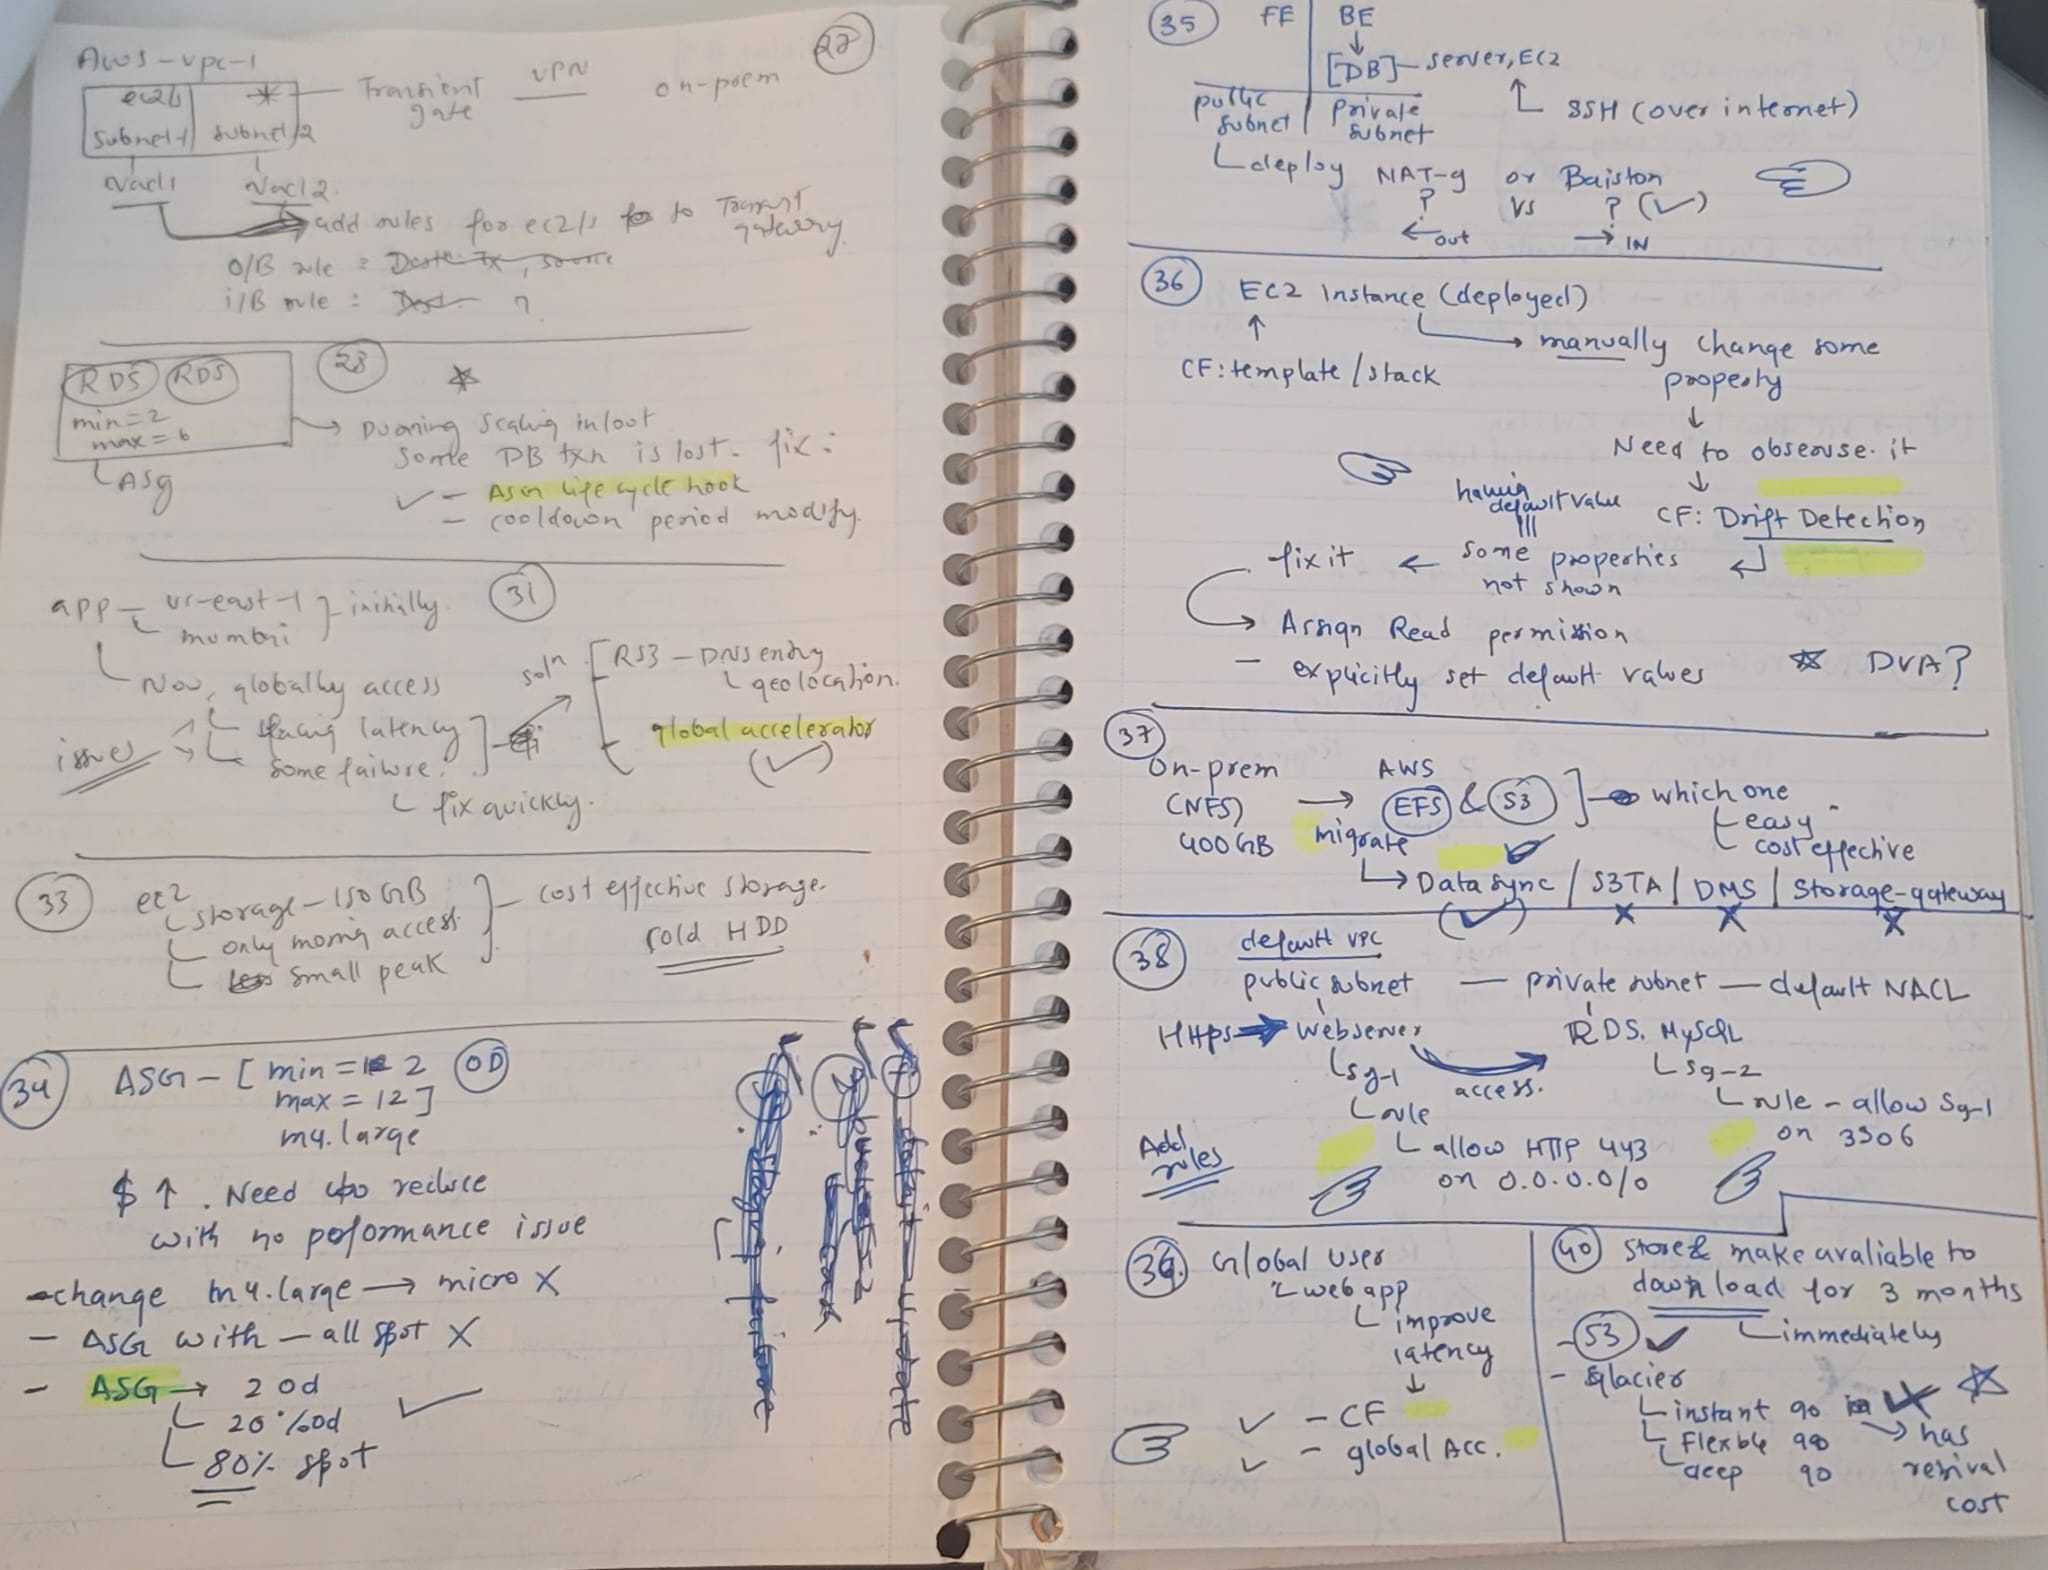 27
AWS-vpc-1
ec2/s
subnet-1 subnet/2
Transient gate
VPN
on-prem
Nacl1 Nacl2.
add rules for ec2/s to Transit gateway
O/B rule :
i/B rule : ?
28
RDS RDS
min=2
max=6
ASG
During scaling in/out
some DB txn is lost. fix:
- ASG Life cycle hook
- cooldown period modify.
31
app - us-east-1
mumbai
initially.
Now, globally access
issue
facing latency
some failure.
fix quickly.
soln
RS3 - DNS entry
geolocation.
global accelerator
33
ec2
storage - 150GB
only morning access.
small peak
cost effective storage.
cold HDD
34
ASG - [ min = 2 OD
max = 12 ]
m4.large
$ ↑. Need to reduce
with no peformance issue
- change m4.large → micro X
- ASG with - all spot X
- ASG → 2 od
20% od
80% spot
35
FE BE
[DB] - server, EC2
SSH (over internet)
public subnet private subnet
deploy NAT-g or Baiston
? vs ? (✓)
← out → IN
36
EC2 instance (deployed)
CF: template / stack
manually change some
property
Need to obseruse. it
CF: Drift Detection
having
default value
some properties
not shown
← fix it
→ Assign Read permission
- explicitly set default values
☆ DVA?
37
On-prem
(NFS)
400GB
→
migrate
AWS
EFS & S3
which one
easy
cost effective
→ Data sync / S3TA / DMS / Storage-gateway
(✓) X X X
38
default VPC
public subnet - private subnet - default NACL
Https → Webserver
RDS. MySQL
access.
Sg-1
rule
allow HTTP 443
on 0.0.0.0/0
Sg-2
rule - allow Sg-1
on 3306
Add rules
39.
Global user
web app
improve
latency
↓
✓ - CF
✓ - global Acc.
40
store & make avaliable to
download for 3 months
immediately
- S3 ✓
- glacier
instant 90
Flexble 90
deep 90
→ has
retrival
cost